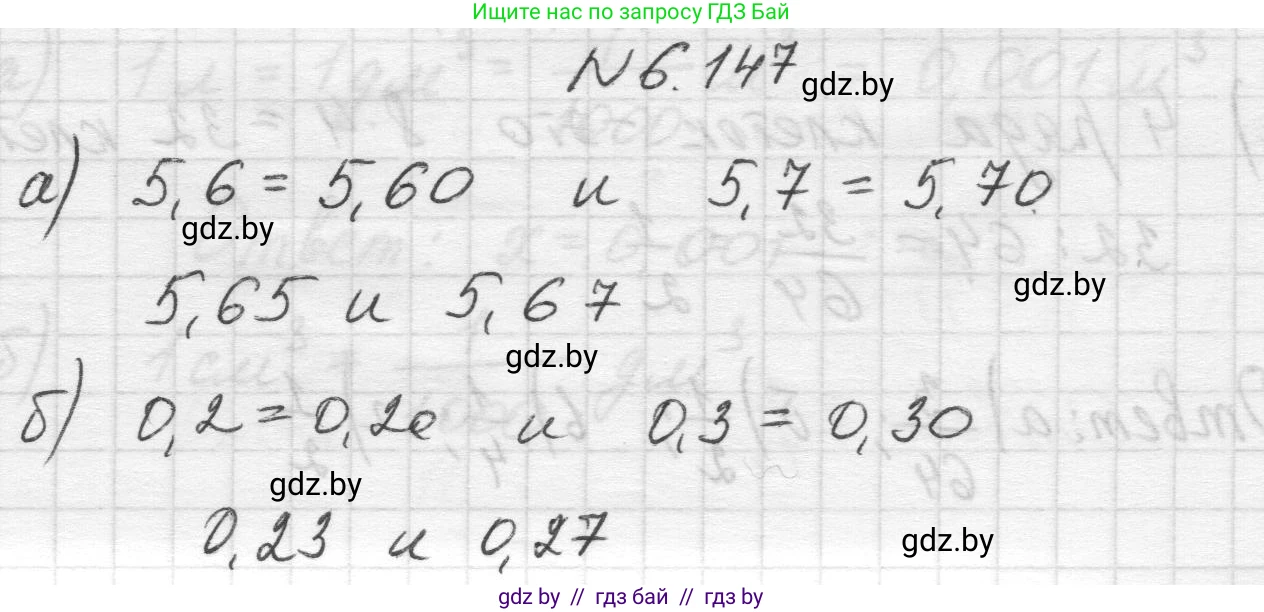 Ищите нас по запросу ГДЗ Бай
N 6.147
gdz.by
а) 5,6 = 5,60 и 5,7 = 5,70
gdz.by
gdz.by
5,65 и 5,67
gdz.by
б) 0,2 = 0,20 и 0,3 = 0,30
gdz.by
0,23 и 0,27
gdz.by
gdz by // гдз бай // gdz by